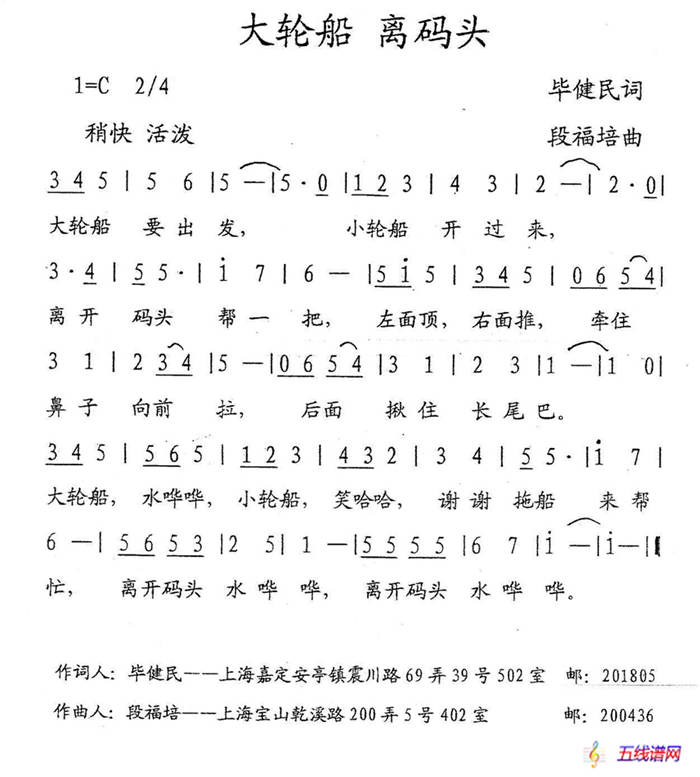 大轮船 离码头
1=C 2/4 毕健民词
稍快 活泼 段福培曲
3 4 5 | 5 6 | 5 — | 5 · 0 | 1 2 3 | 4 3 | 2 — | 2 · 0 |
大轮船 要出发, 小轮船 开过来,
3 · 4 | 5 5 · | i 7 | 6 — | 5 i 5 | 3 4 5 | 0 6 5 4 |
离开 码头 帮一把, 左面顶, 右面推, 牵住
3 1 | 2 3 4 | 5 — | 0 6 5 4 | 3 1 | 2 3 | 1 — | 1 0 |
鼻子 向前 拉, 后面 揪住 长尾巴。
3 4 5 | 5 6 5 | 1 2 3 | 4 3 2 | 3 4 | 5 5 · | i 7 |
大轮船, 水哗哗, 小轮船, 笑哈哈, 谢谢 拖船 来帮
6 — | 5 6 5 3 | 2 5 | 1 — | 5 5 5 5 | 6 7 | i — | i — ‖
忙, 离开码头 水哗哗, 离开码头 水哗哗。
作词人: 毕健民——上海嘉定安亭镇震川路69弄39号502室 邮: 201805
作曲人: 段福培——上海宝山乾溪路200弄5号402室 邮: 200436
五线谱网